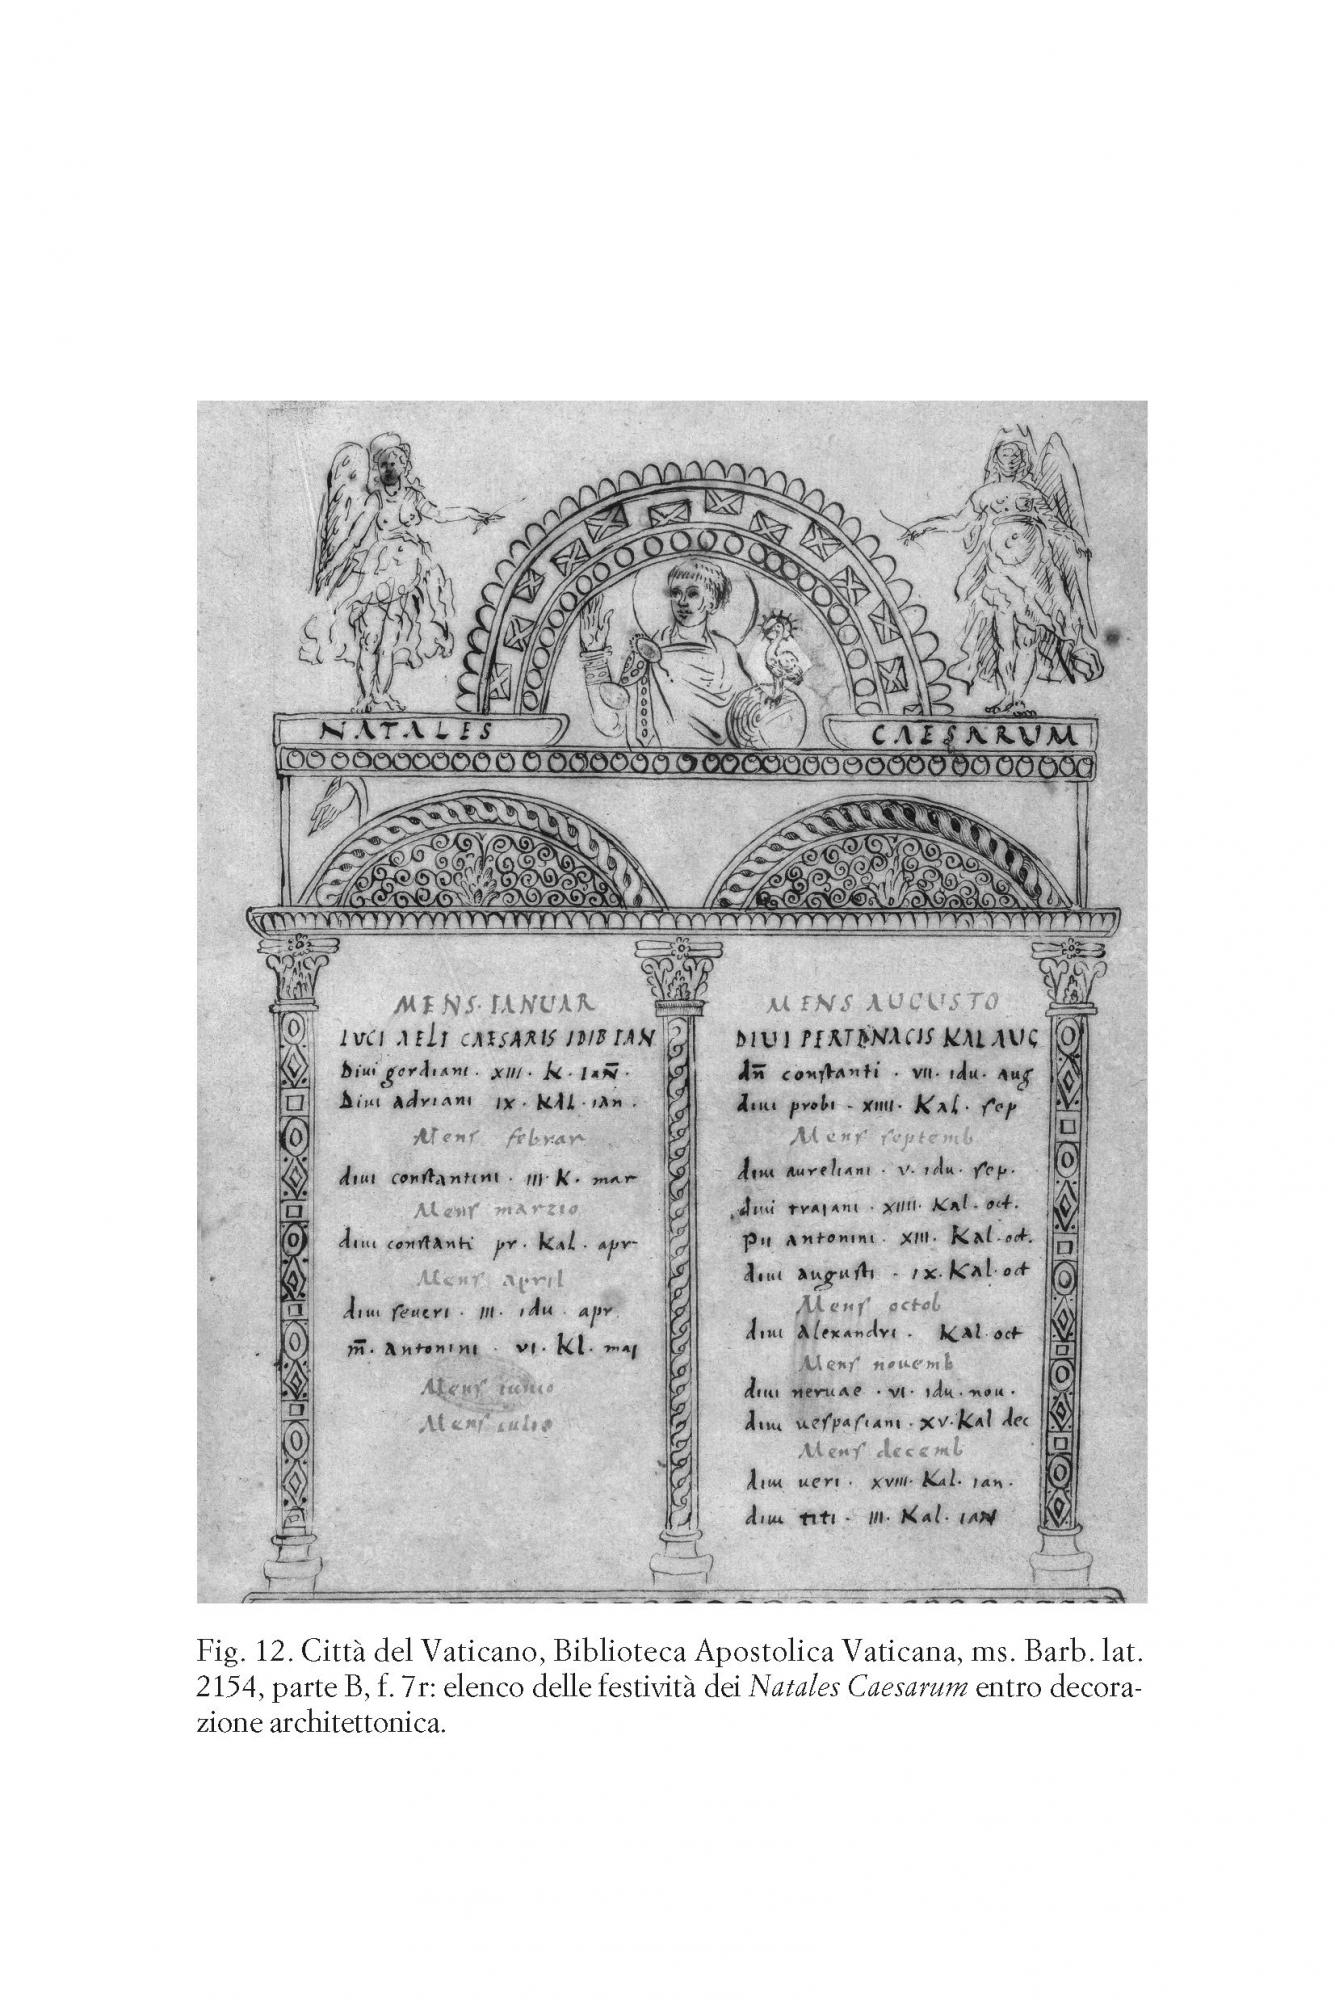 NATALES CAESARUM
MENS·IANUAR
LUCI AELI CAESARIS IDIB IAN
Diui gordiani · XIII · K · IAN̅ ·
Diui adriani IX · KAL · ian ·
Mens februar
diui constantini · III · K · mar
Mens marzio
diui constanti pr · Kal · apr
Mens april
diui seueri · III · idu · apr
m̅ · antonini · VI · Kl · maj
Mens iunio
Mens iulio
MENS AUGUSTO
DIUI PERTINACIS KAL AUG
dn̅ constanti · VII · idu · aug
diui probi - XIIII · Kal · sep
Mens septemb
diui aureliani · V · idu · sep ·
diui traiani · XIIII · Kal · oct ·
Pii antonini · XIII · Kal · oct ·
diui augusti - IX · Kal · oct
Mens octob
diui alexandri · Kal · oct
Mens nouemb
diui neruae · VI · idu · nou ·
diui uespasiani · XV · Kal dec
Mens decemb
diui ueri · XVIII · Kal · ian ·
diui titi · III · Kal · IAN
Fig. 12. Città del Vaticano, Biblioteca Apostolica Vaticana, ms. Barb. lat.
2154, parte B, f. 7r: elenco delle festività dei Natales Caesarum entro decora-
zione architettonica.